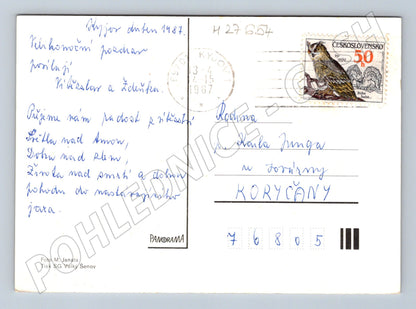 duben 1987.
Velikonoční pozdrav
posílají
Vítězslav a Zdeňka.
Přejeme vám radost z vítězství
Světla nad tmou,
Dobra nad zlem,
Života nad smrtí a dobrou
pohodu do nastávajícího
jara.
Foto M. Janata
Tisk SG Velký Šenov
PANORAMA
H 27 6.54
1987
ČESKOSLOVENSKO
50 h
Rodina
Karla Junga
u továrny
KORYČANY
7 6 8 0 5
POHLEDNICE - CECH